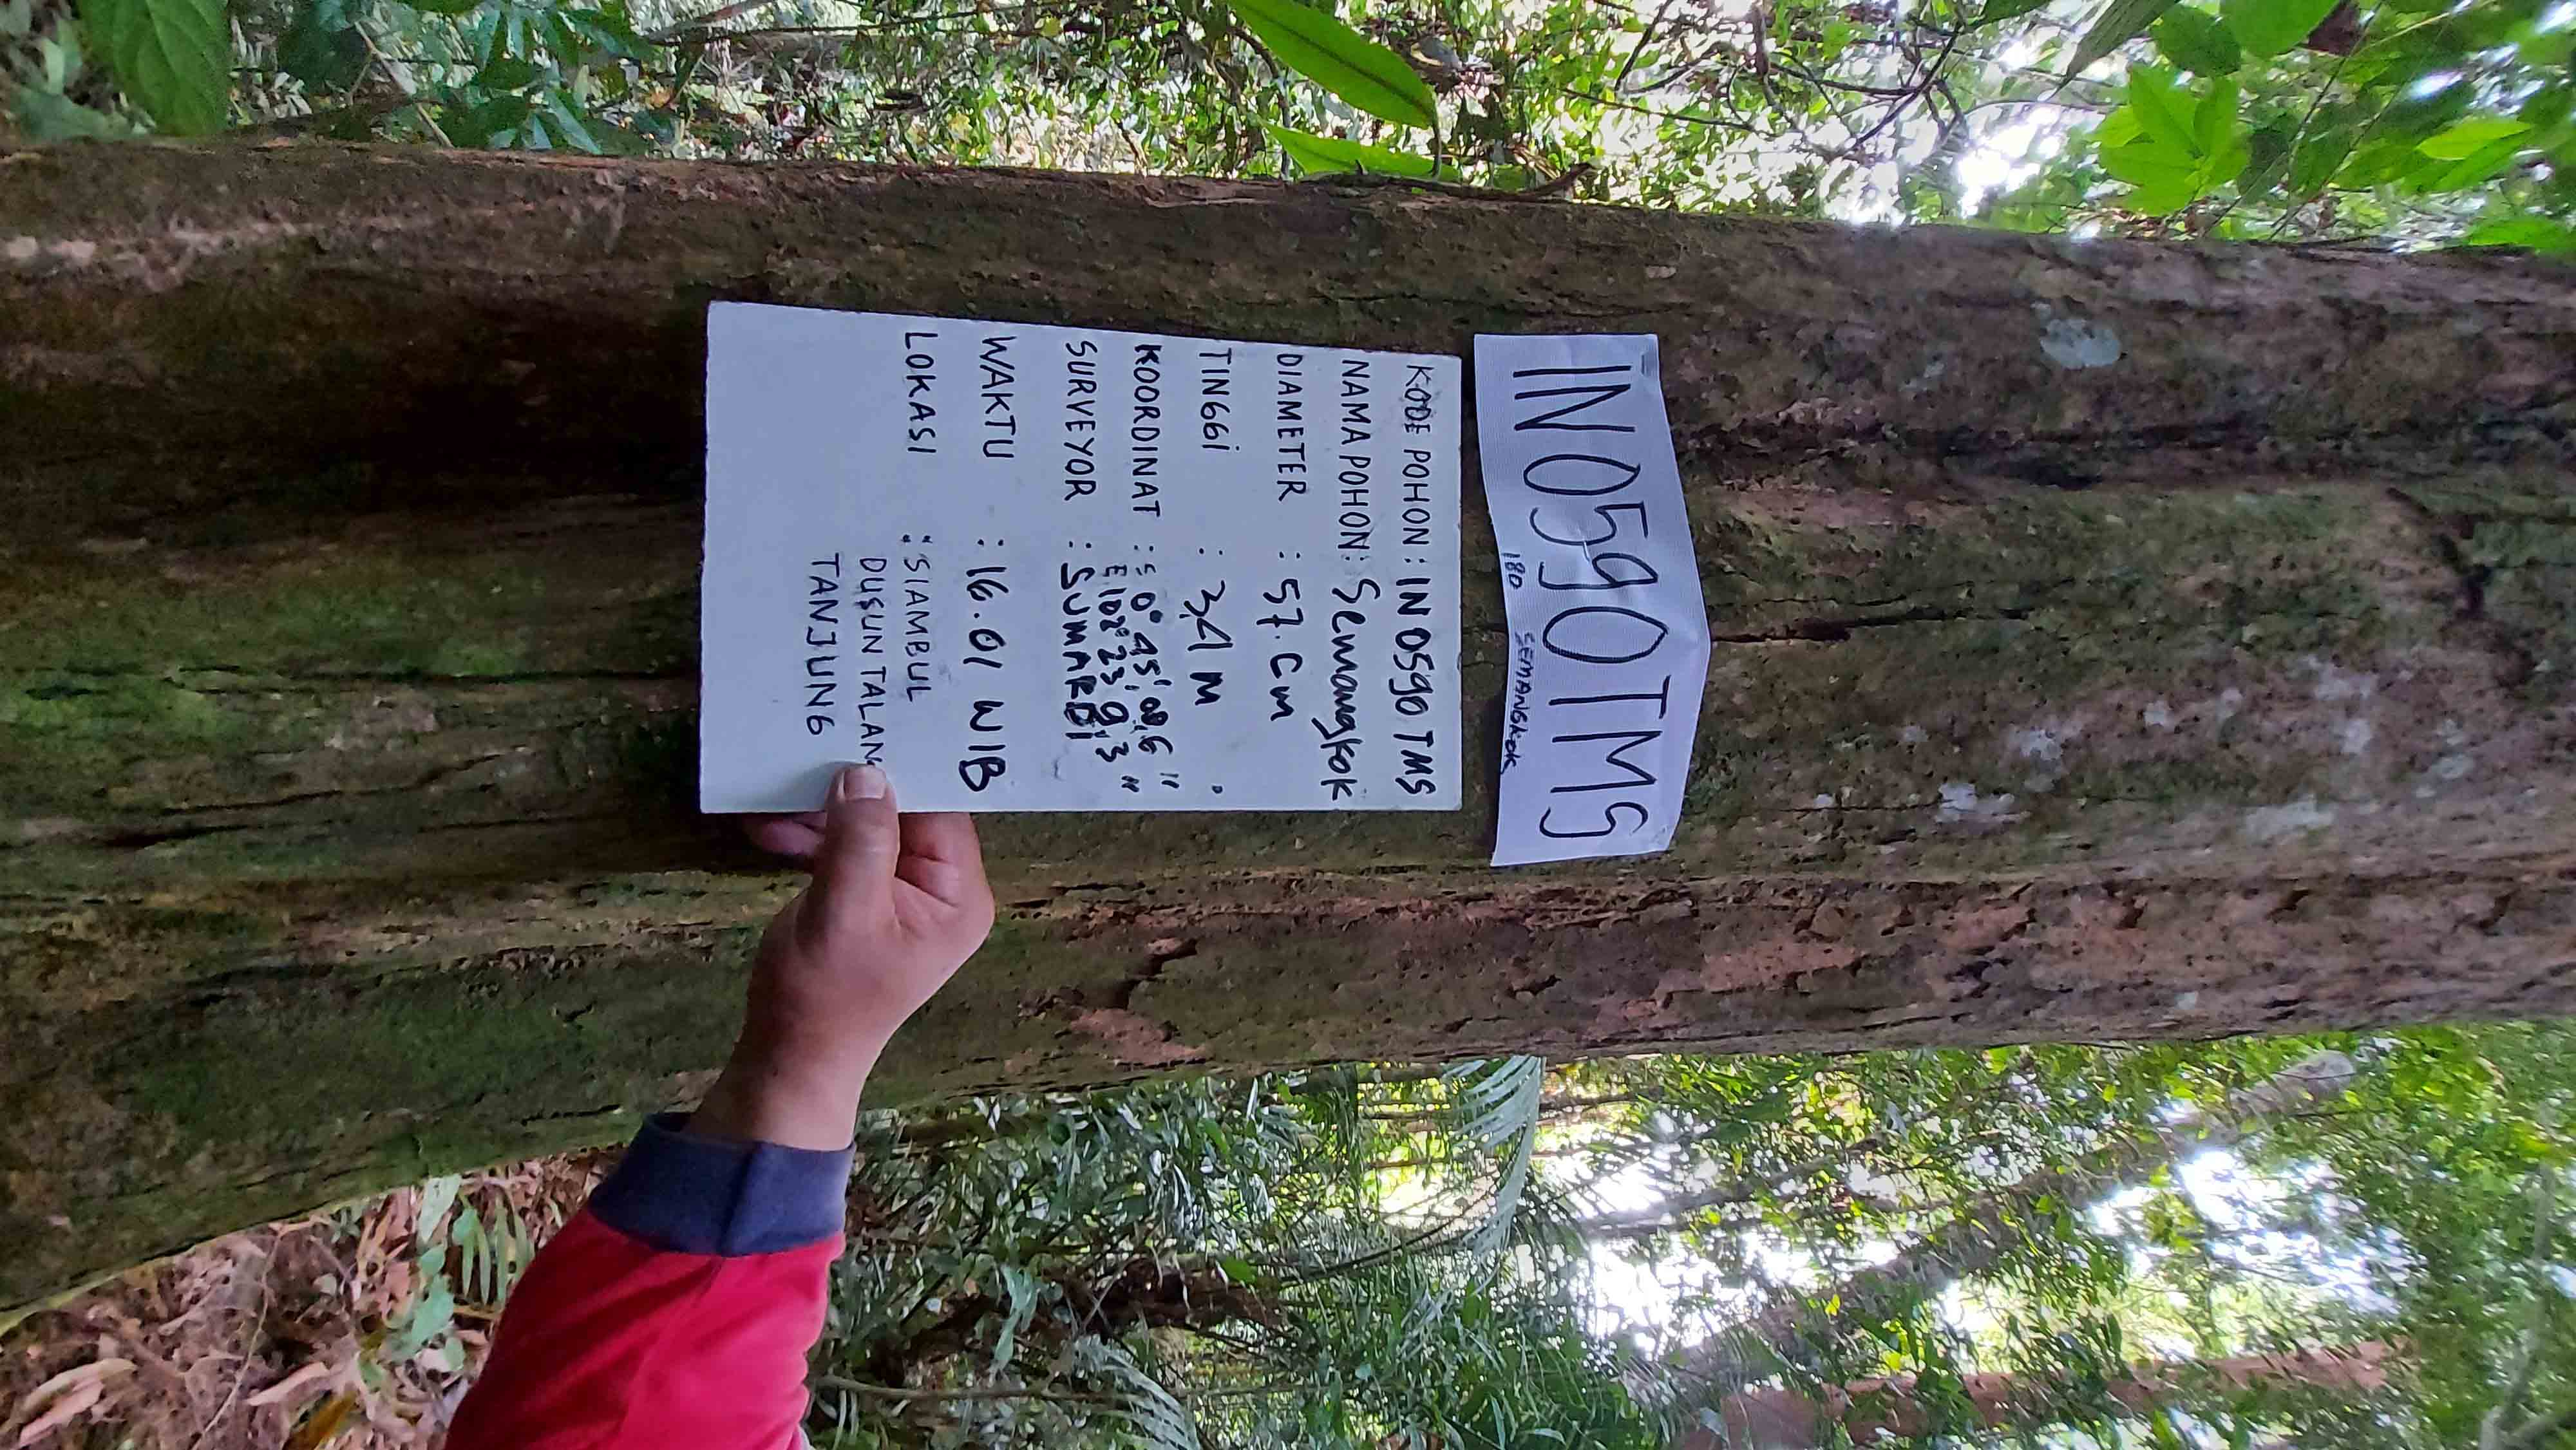 IN0590TMS
180 SEMANGKOK
KODE POHON : IN 0590 TMS
NAMA POHON : Semangkok
DIAMETER : 57. Cm
TINGGI : 34 M
KOORDINAT : S 0° 45' 08,6 "
E 102° 23' 9,3 "
SURVEYOR : SUMARDI
WAKTU : 16.01 WIB
LOKASI : SIAMBUL
DUSUN TALANG
TANJUNG